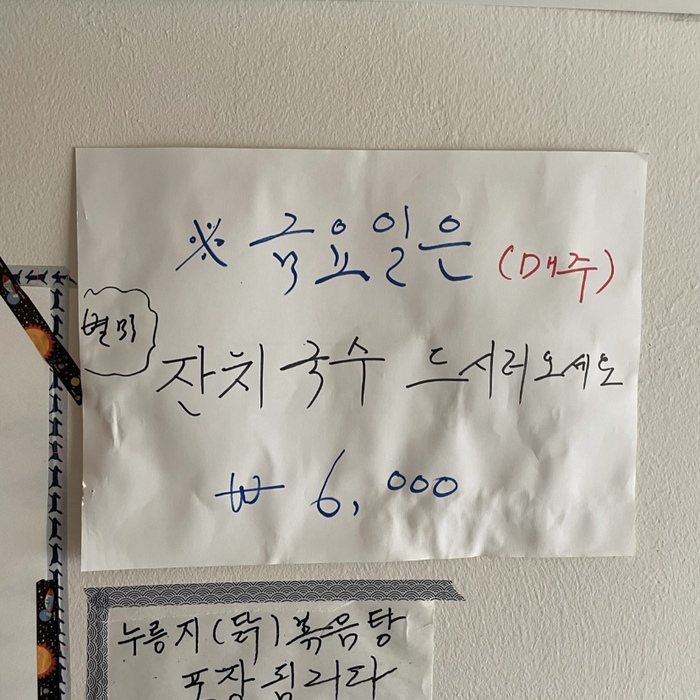 ※ 금요일은 (매주)
별미
잔치국수 드시러오세요
₩ 6,000
누룽지(닭)볶음탕
포장됩니다